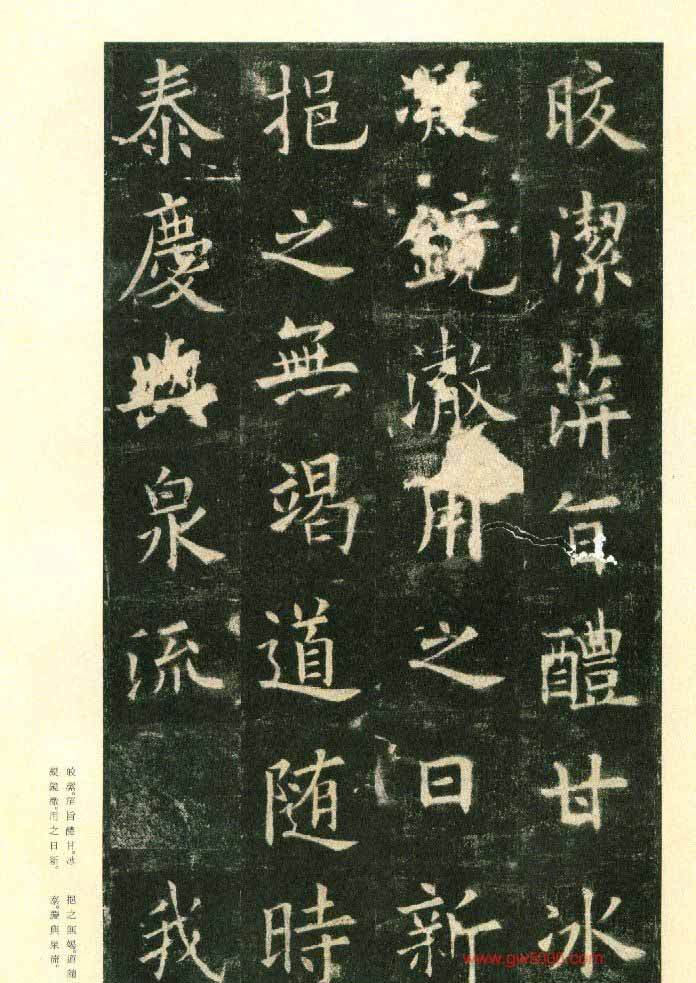 晈潔蓱旨醴甘冰
凝鏡澈用之日新
挹之無竭道随時
泰慶與泉流我
皎潔。蓱旨醴甘。冰
凝鏡澈。用之日新。
挹之無竭。道隨
泰。慶與泉流。
www.gw5000.com